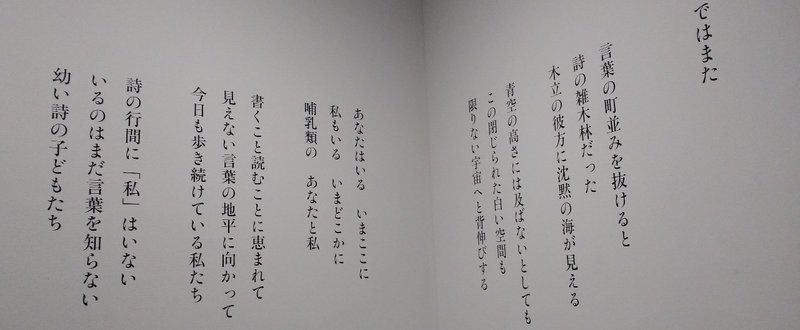 ではまた
言葉の町並みを抜けると
詩の雑木林だった
木立の彼方に沈黙の海が見える
青空の高さには及ばないとしても
この閉じられた白い空間も
限りない宇宙へと背伸びする
あなたはいる　いまここに
私もいる　いまどこかに
哺乳類の　あなたと私
書くこと読むことに恵まれて
見えない言葉の地平に向かって
今日も歩き続けている私たち
詩の行間に「私」はいない
いるのはまだ言葉を知らない
幼い詩の子どもたち